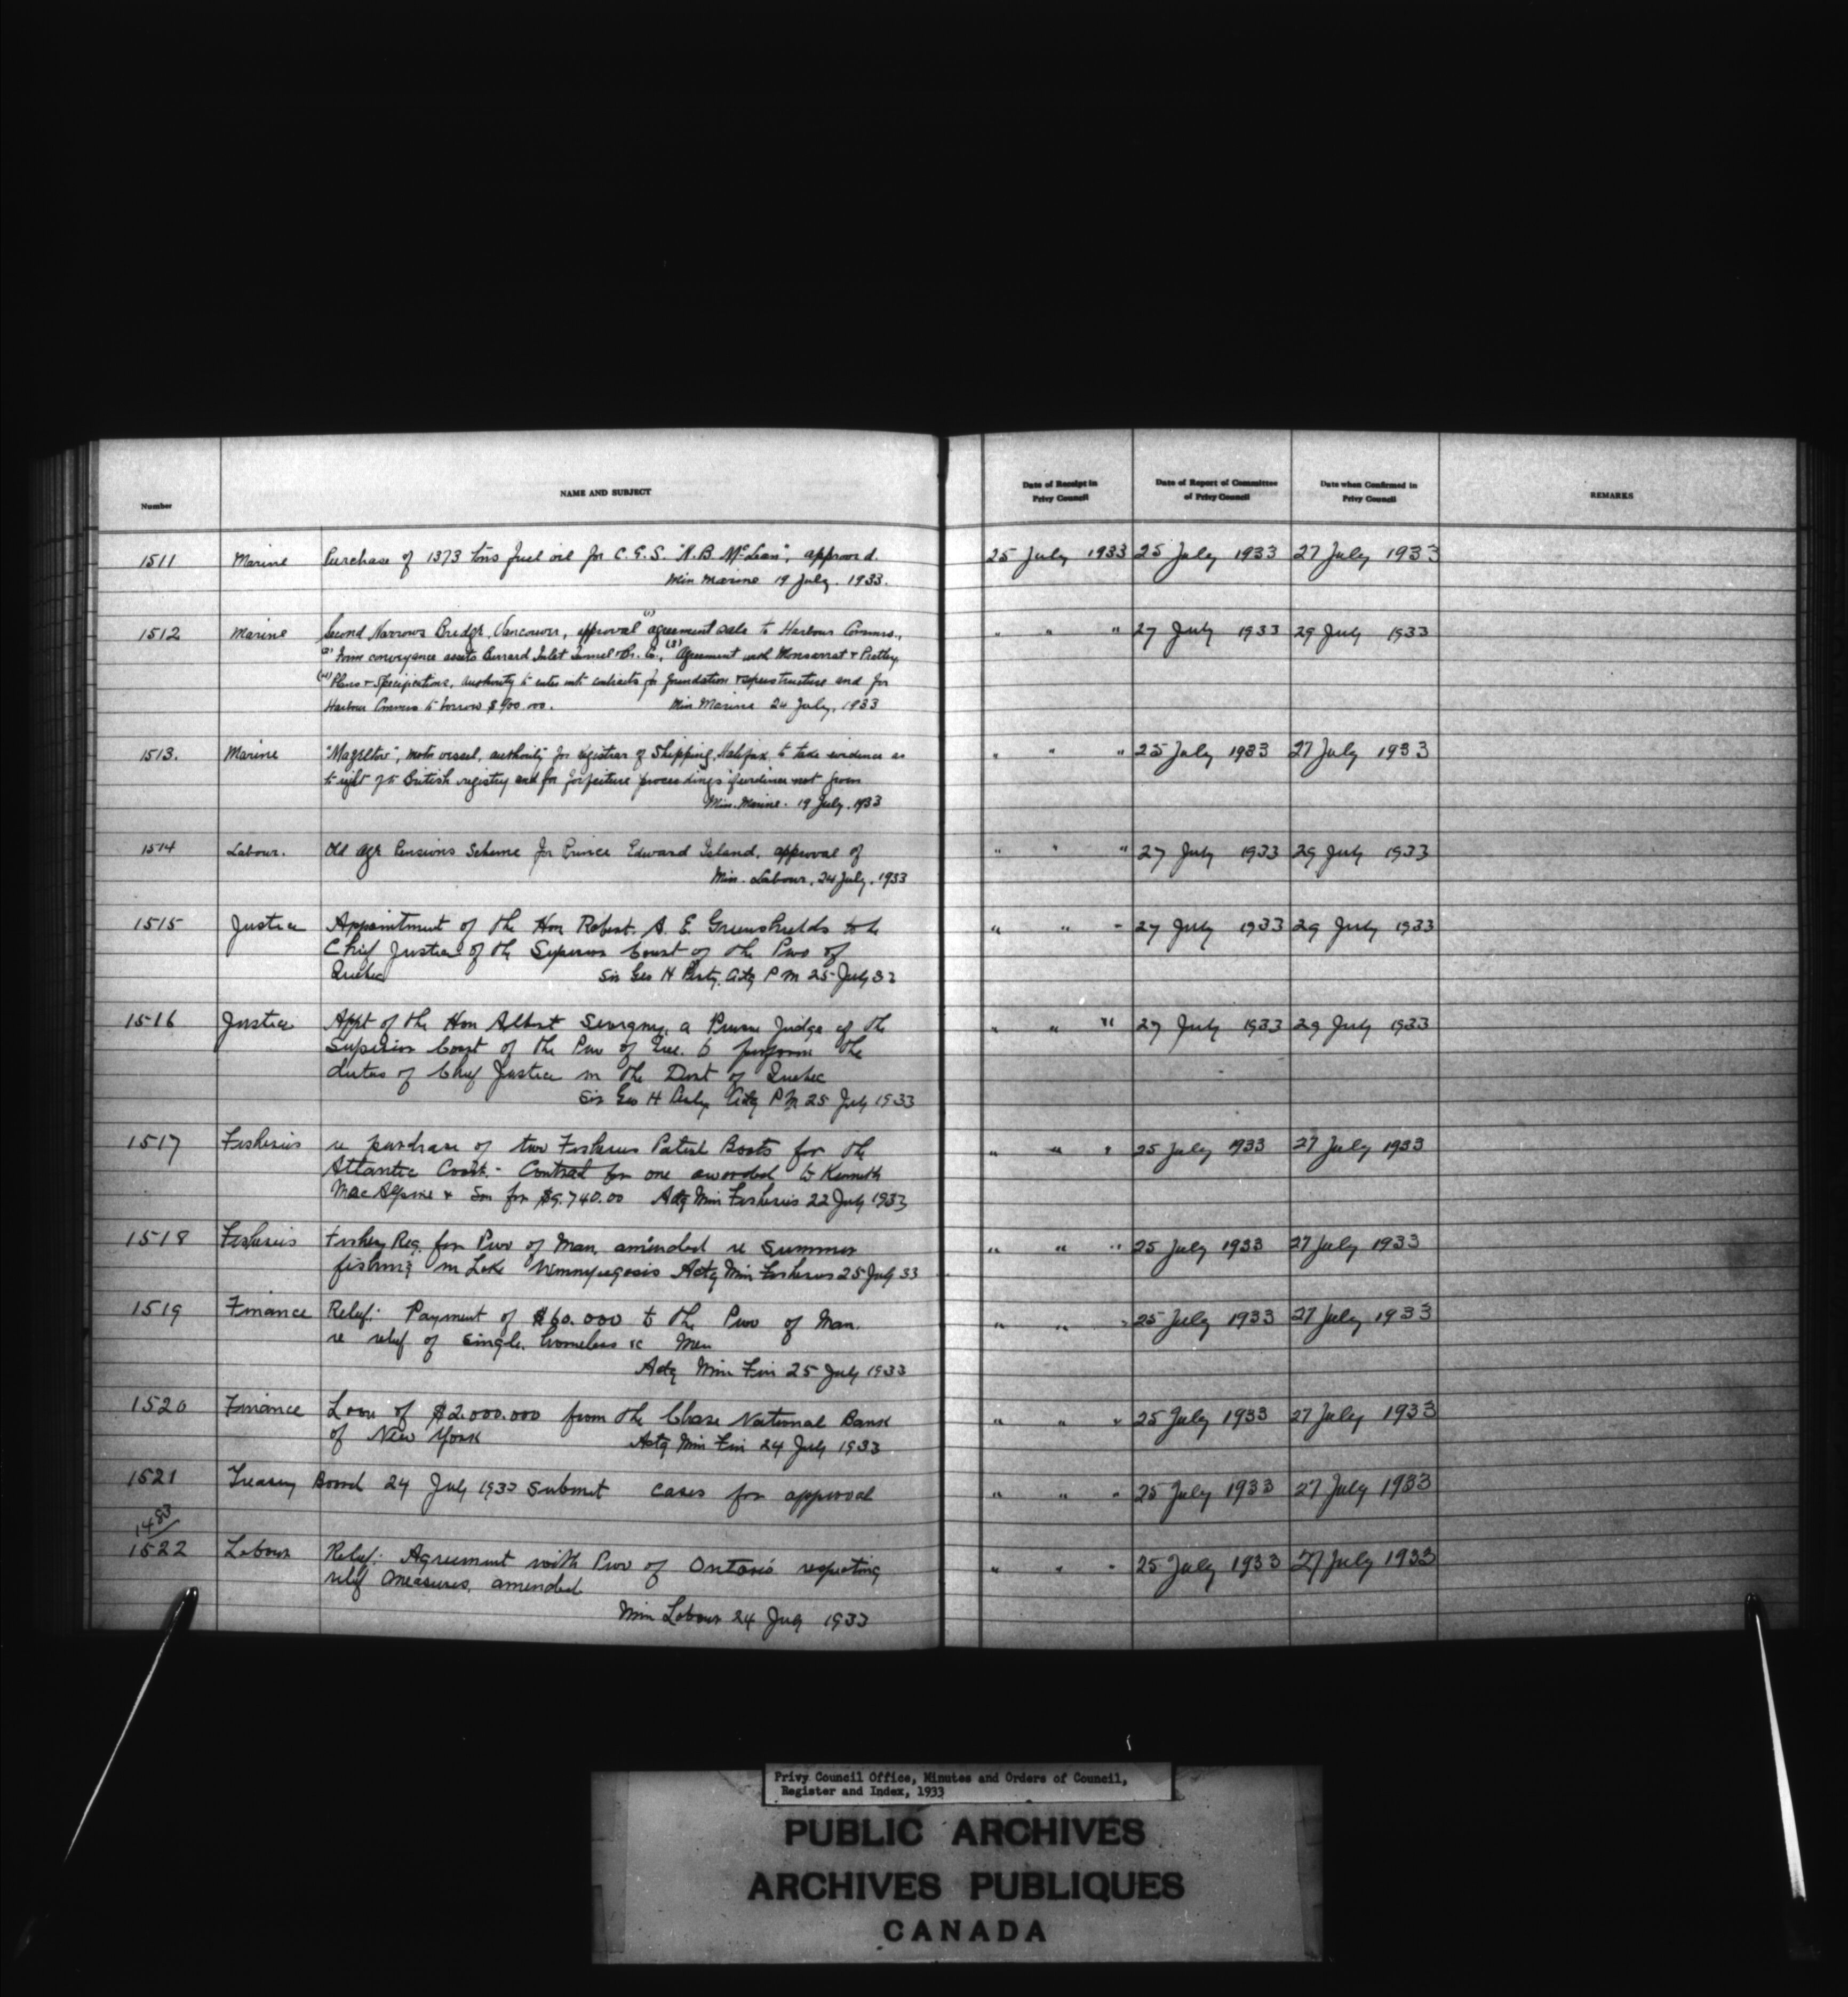 Number
NAME AND SUBJECT
Date of Receipt in Privy Council
Date of Report of Committee of Privy Council
Date when Confirmed in Privy Council
REMARKS
1511 Marine Purchase of 1373 tons fuel oil for C.G.S. "N.B. McLean", approved. 25 July 1933 25 July 1933 27 July 1933
Min Marine 19 July, 1933.
1512 Marine Second Narrows Bridge, Vancouver, approval (1) agreement sale to Harbour Commrs., " " " 27 July 1933 29 July 1933
(2) Form conveyance assets Burrard Inlet Tunnel & Br. Co., (3) Agreement with Monsarrat & Pratley,
(4) Plans & Specifications, authority to enter into contracts for foundation & superstructure and for
Harbour Commrs to borrow $900.00. Min Marine 24 July, 1933
1513. Marine motor vessel, authority for registrar of Shipping, Halifax, to take evidence as " " " 25 July 1933 27 July 1933
to right to British registry and for forfeiture proceedings if evidence not given
Min. Marine. 19 July. 1933
1514 Labour. Old age Pensions Scheme for Prince Edward Island, approval of " " " 27 July 1933 29 July 1933
Min. Labour, 24 July, 1933
1515 Justice Appointment of the Hon Robert A. E. Greenshields to be " " " 27 July 1933 29 July 1933
Chief Justice of the Superior Court of the Prov of
Quebec Sir Geo H Perley Actg P M 25 July 33
1516 Justice Appt of the Hon Albert Sevigny, a Puisne Judge of the " " " 27 July 1933 29 July 1933
Superior Court of the Prov of Que. to perform the
duties of Chief Justice in the Dist of Quebec
Sir Geo H Perley Actg P M 25 July 1933
1517 Fisheries re purchase of two Fisheries Patrol Boats for the " " " 25 July 1933 27 July 1933
Atlantic Coast - Contract for one awarded to Kenneth
MacAlpine & Son for $9,740.00 Actg Min Fisheries 22 July 1933
1518 Fisheries Fishery Reg. for Prov of Man. amended re summer " " " 25 July 1933 27 July 1933
fishing in Lake Winnipegosis Actg Min Fisheries 25 July 33
1519 Finance Relief: Payment of $60.000 to the Prov of Man. " " " 25 July 1933 27 July 1933
re relief of single, homeless &c Men
Actg Min Fin 25 July 1933
1520 Finance Loan of $2.000.000 from the Chase National Bank " " " 25 July 1933 27 July 1933
of New York Actg Min Fin 24 July 1933
1521 Treasury Board 24 July 1933 submit cases for approval " " " 25 July 1933 27 July 1933
1483
1522 Labour Relief: Agreement with Prov of Ontario respecting " " " 25 July 1933 27 July 1933
relief measures, amended
Min Labour 24 July 1933
Privy Council Office, Minutes and Orders of Council,
Register and Index, 1933
PUBLIC ARCHIVES
ARCHIVES PUBLIQUES
CANADA